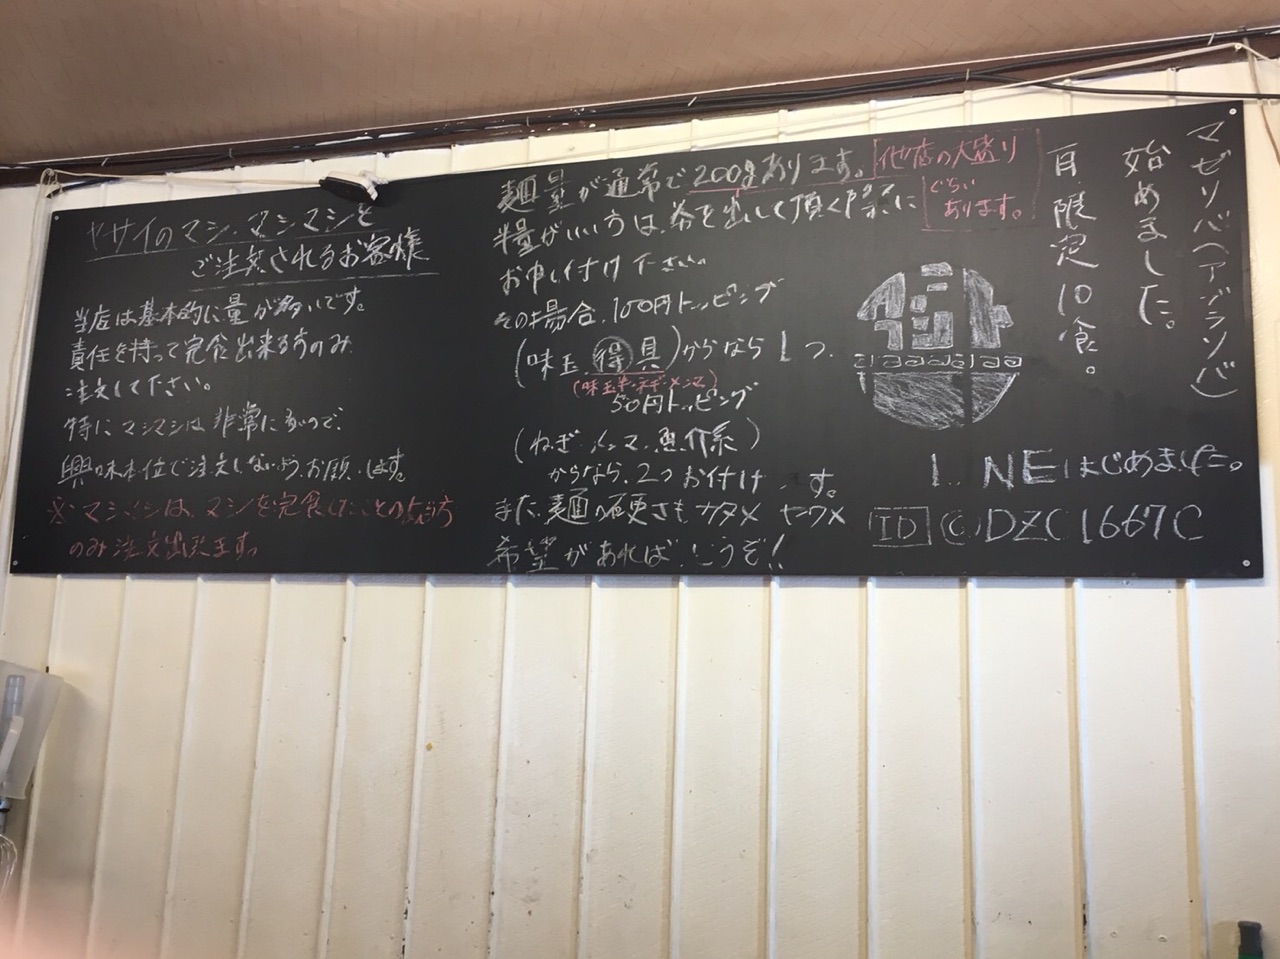 ヤサイのマシ、マシマシを
ご注文されるお客様
当店は基本的に量が多いです。
責任を持って完食出来る方のみ
注文して下さい。
特にマシマシは非常に多いので、
興味本位で注文しないようお願いします。
※マシマシは、マシを完食したことのある方
のみ注文出来ます。
麺量が通常で200gあります。
他店の大盛り
ぐらい
あります。
半量がいい方は、券を出して頂く際に
お申し付け下さい。
その場合、100円トッピング
(味玉、得具)からなら1つ、
(味玉半・ネギ・メンマ)
50円トッピング
(ねぎ、メンマ、魚介系)
からなら、2つお付けします。
また、麺の硬さも、カタメ ヤワメ
希望があればどうぞ!!
マゼリバ(アブラソバ)
始めました。
日限定10食。
LINEはじめました。
ID @DZC1667C